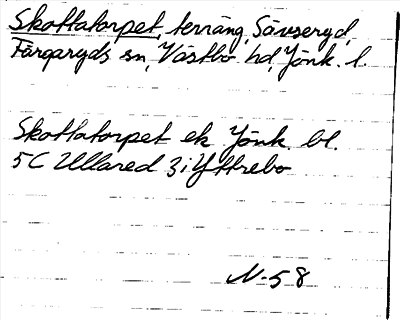 Skottatorpet, terräng, Sävseryd,
Färgaryds sn, Västbo hd, Jönk. l.
Skottatorpet ek Jönk bl.
5C Ullared 3i Yttrebo
N-58